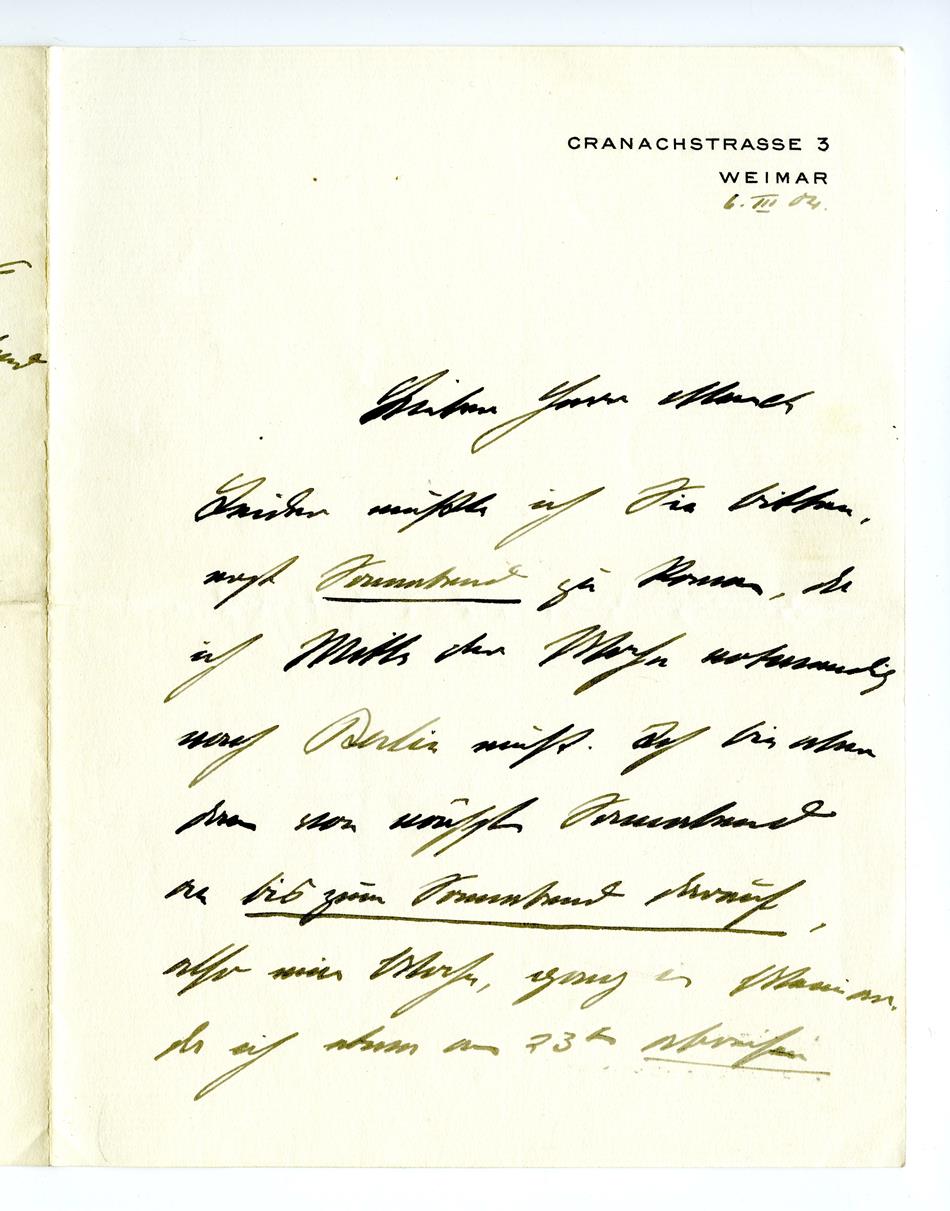 CRANACHSTRASSE 3
WEIMAR
6. III 04.
Lieber Herr Munch
Leider müßte ich Sie bitten,
erst Sonnabend zu kommen, da
ich Mitte der Woche notwendig
nach Berlin muß. Ich bin aber
dann von nächsten Sonnabend
an bis zum Sonnabend darauf,
also eine Woche, ganz in Weimar.
da ich am 23ten